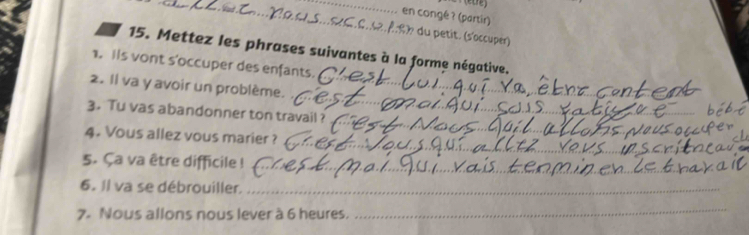 en congé ? (partir)
du petit. (s'occuper)
15. Mettez les phrases suivantes à la forme négative.
1. Ils vont s'occuper des enfants. C'est lui qui va être content
2. Il va y avoir un problème. C'est moi qui suis fatigué
3. Tu vas abandonner ton travail ? C'est Nous
4. Vous allez vous marier ? C'est Vous qui allez vous
5. Ça va être difficile ! C'est moi qui vais terminer le travail
6. Il va se débrouiller.
7. Nous allons nous lever à 6 heures.